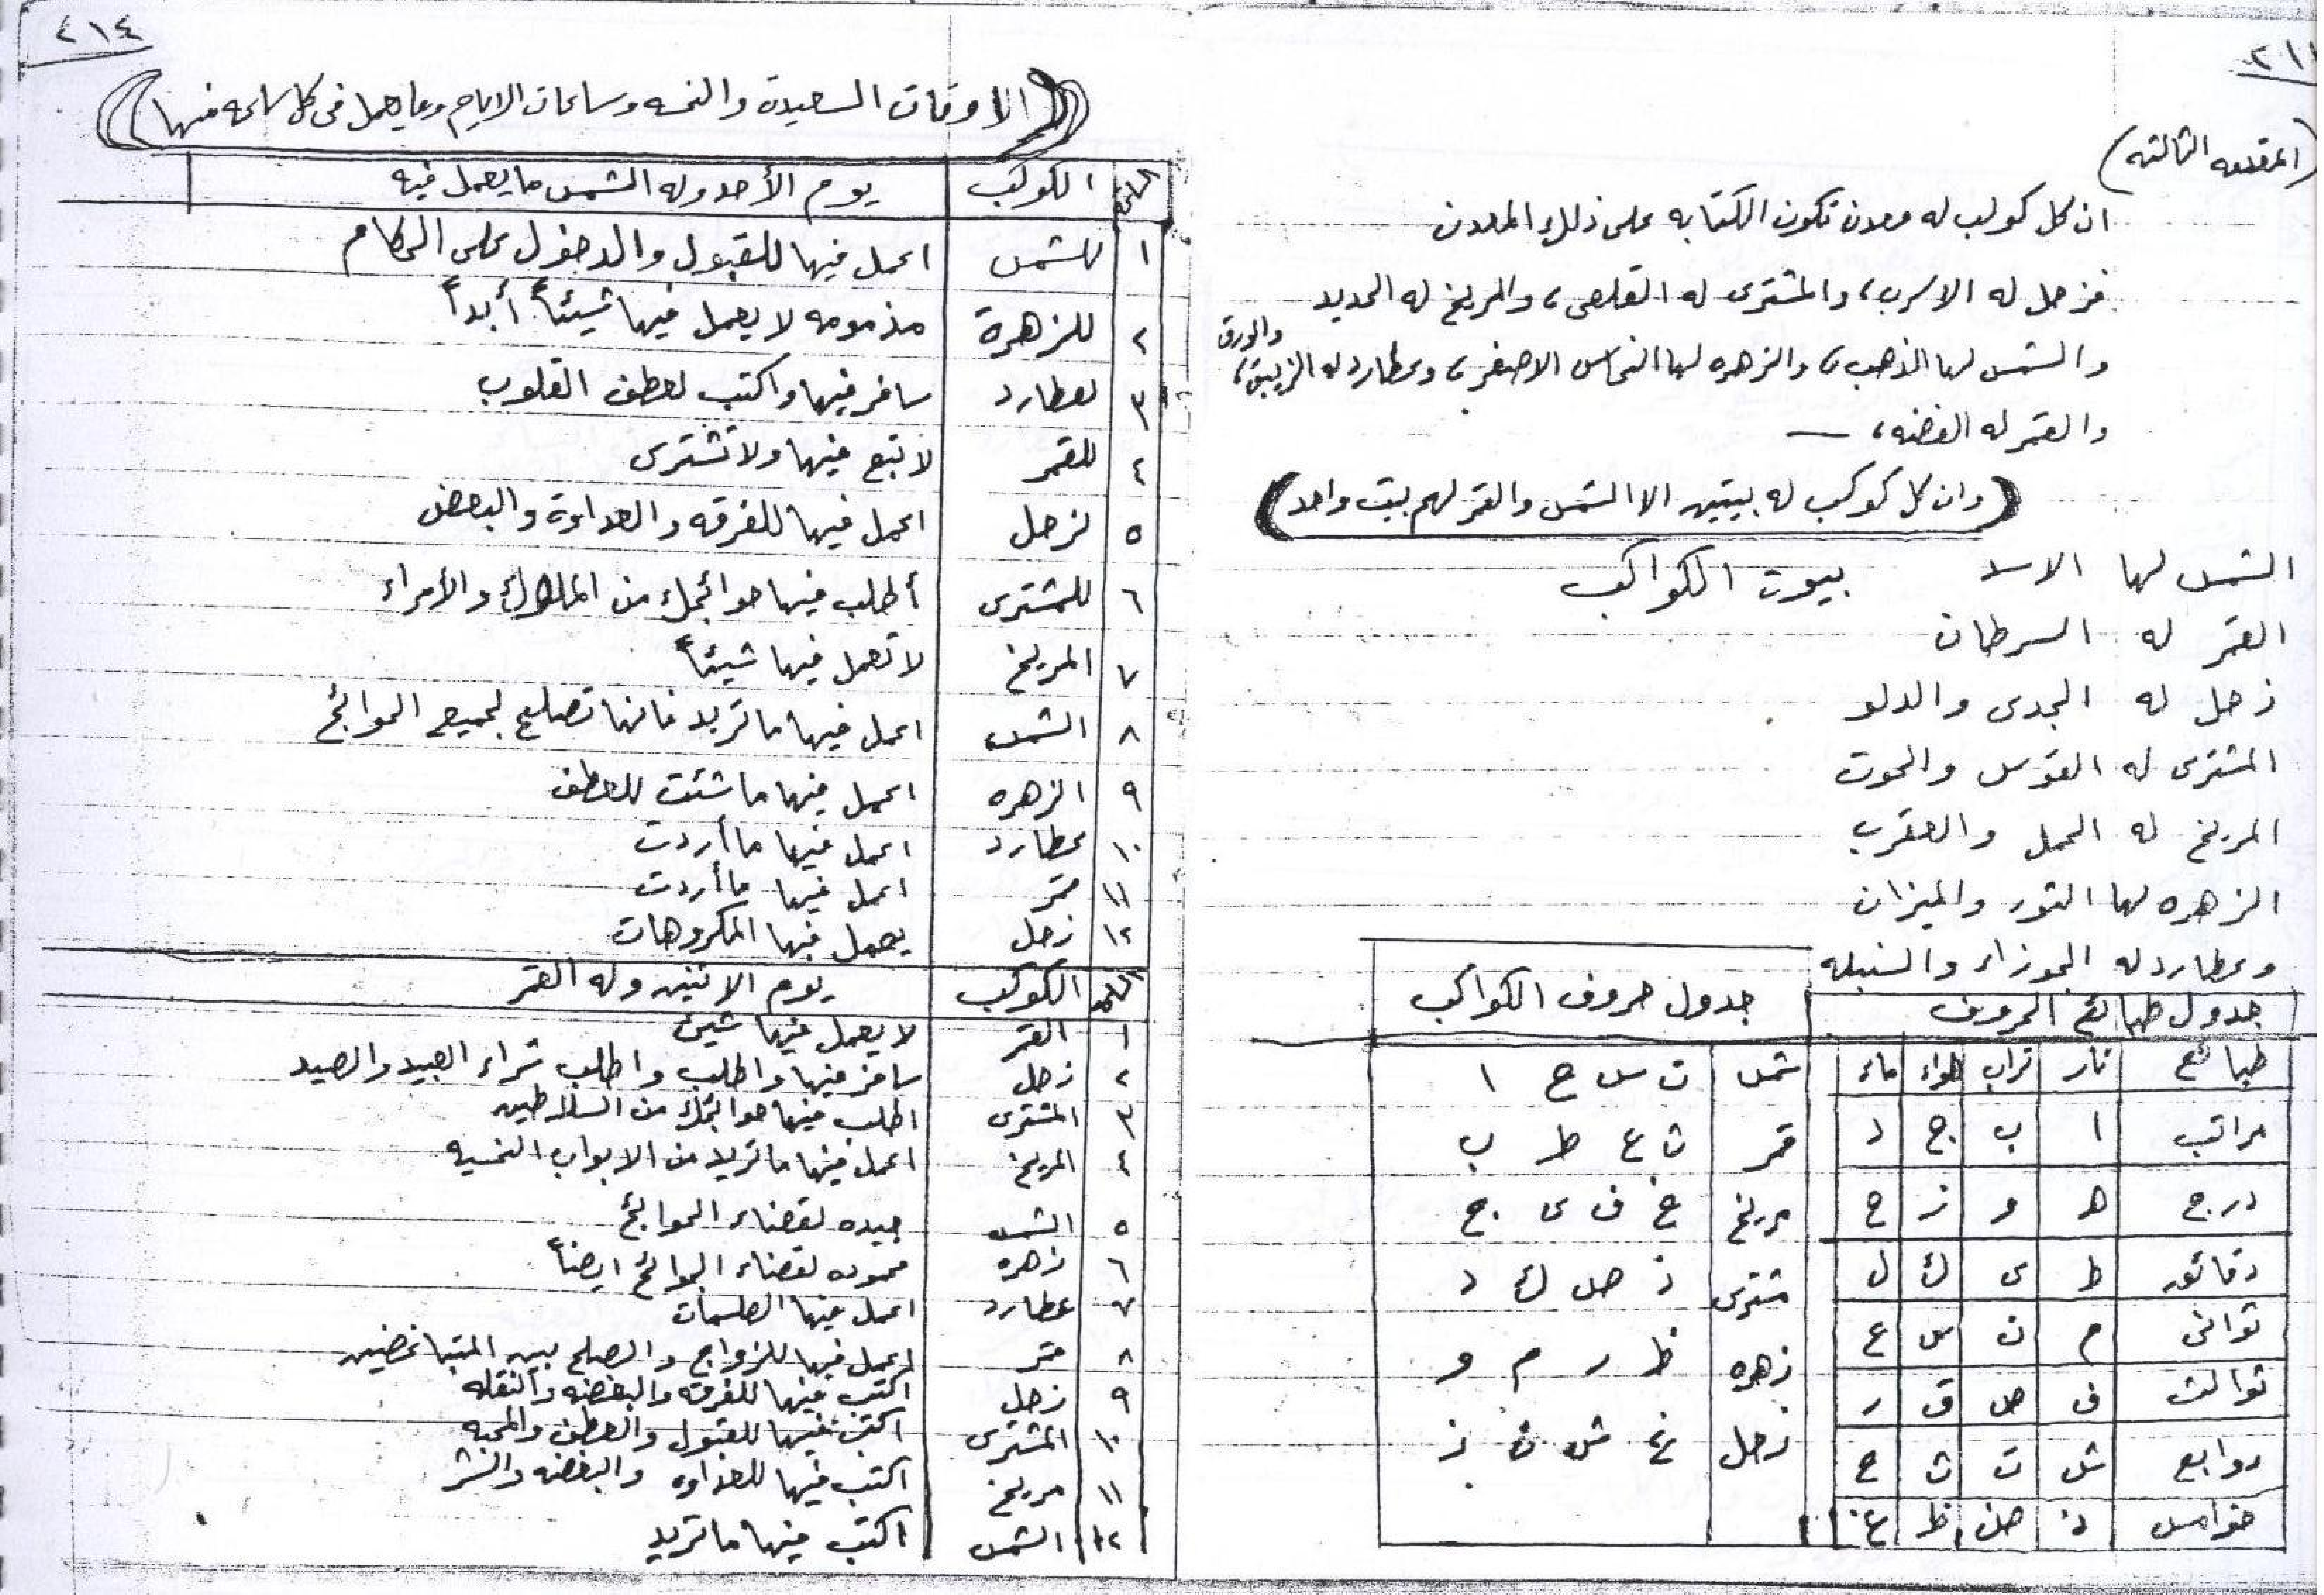 (المقدمه الثالثه)
ان كل كوكب له معدن تكون الكتابه على ذلك المعدن
فزحل له الاسرب، والمشترى له القلعى، والمريخ له الحديد
والشمس لها الذهب، والزهره لها النحاس الاصفر، وعطارد له الزيبق، والورق
والقمر له الفضه، —
(وان كل كوكب له بيتين الا الشمس والقمر لهم بيت واحد)
بيوت الكواكب
الشمس لها الاسد
القمر له السرطان
زحل له الجدى والدلو
المشترى له القوس والحوت
المريخ له الحمل والعقرب
الزهره لها الثور والميزان
وعطارد له الجوزاء والسنبله
جدول طبائع الحروف
طبائع نار تراب هواء ماء
مراتب ا ب ج د
درج ه و ز ح
دقائق ط ى ك ل
ثوانى م ن س ع
ثوالث ف ص ق ر
روابع ش ت ث خ
خوامس ذ ض ظ غ
جدول حروف الكواكب
شمس ت س ح ا
قمر ث ع ط ب
مريخ خ ف ى ج
مشترى ذ ص ك د
زهره ظ ر م و
زحل غ ش ن ز
٤١٤
(الاوقات السعيدة والنحسه وساعات الايام وما يعمل فى كل ساعه منها)
الساعة الكوكب يوم الأحد وله الشمس ما يعمل فيه
١ للشمس اعمل فيها للقبول والدخول على الحكام
٢ للزهرة مذمومه لا يعمل فيها شيئاً أبداً
٣ لعطارد سافر فيها واكتب لعطف القلوب
٤ للقمر لا تبع فيها ولا تشترى
٥ لزحل اعمل فيها للفرقه والعداوة والبغض
٦ للمشترى أطلب فيها حوائجك من الملوك والأمراء
٧ المريخ لا تعمل فيها شيئاً
٨ الشمس اعمل فيها ما تريد فانها تصلح لجميع الحوائج
٩ الزهره اعمل فيها ما شئت للعطف
١٠ عطارد اعمل فيها ما أردت
١١ قمر اعمل فيها ما أردت
١٢ زحل يعمل فيها المكروهات
الساعة الكوكب يوم الاثنين وله القمر
١ القمر لا يعمل فيها شيئ
٢ زحل سافر فيها واطلب واطلب شراء العبيد والصيد
٣ المشترى اطلب فيها حوائجك من السلاطين
٤ المريخ اعمل فيها ما تريد من الابواب النحسيه
٥ الشمس جيده لقضاء الحوائج
٦ زهره محموده لقضاء الحوائج ايضاً
٧ عطارد اعمل فيها الطلسمات
٨ قمر اعمل فيها للزواج والصلح بين المتباغضين
٩ زحل اكتب فيها للفرقه والبغضه والنقله
١٠ المشترى اكتب فيها للقبول والعطف والمحبه
١١ مريخ اكتب فيها للعداوه والبغضه والشر
١٢ الشمس اكتب فيها ما تريد